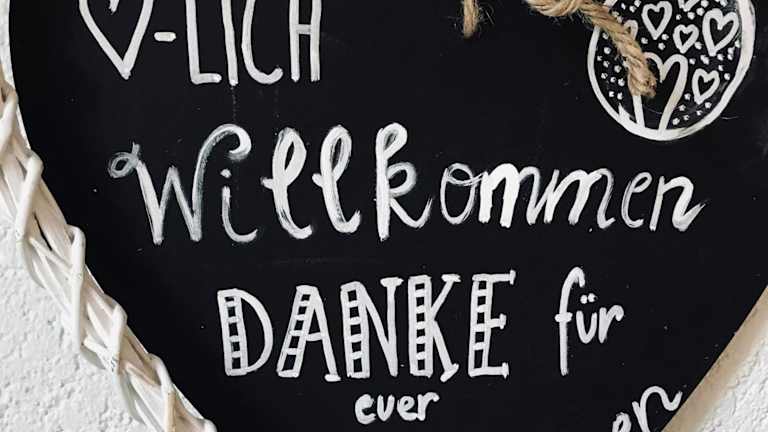 ♡-LICH
Willkommen
DANKE für
euer